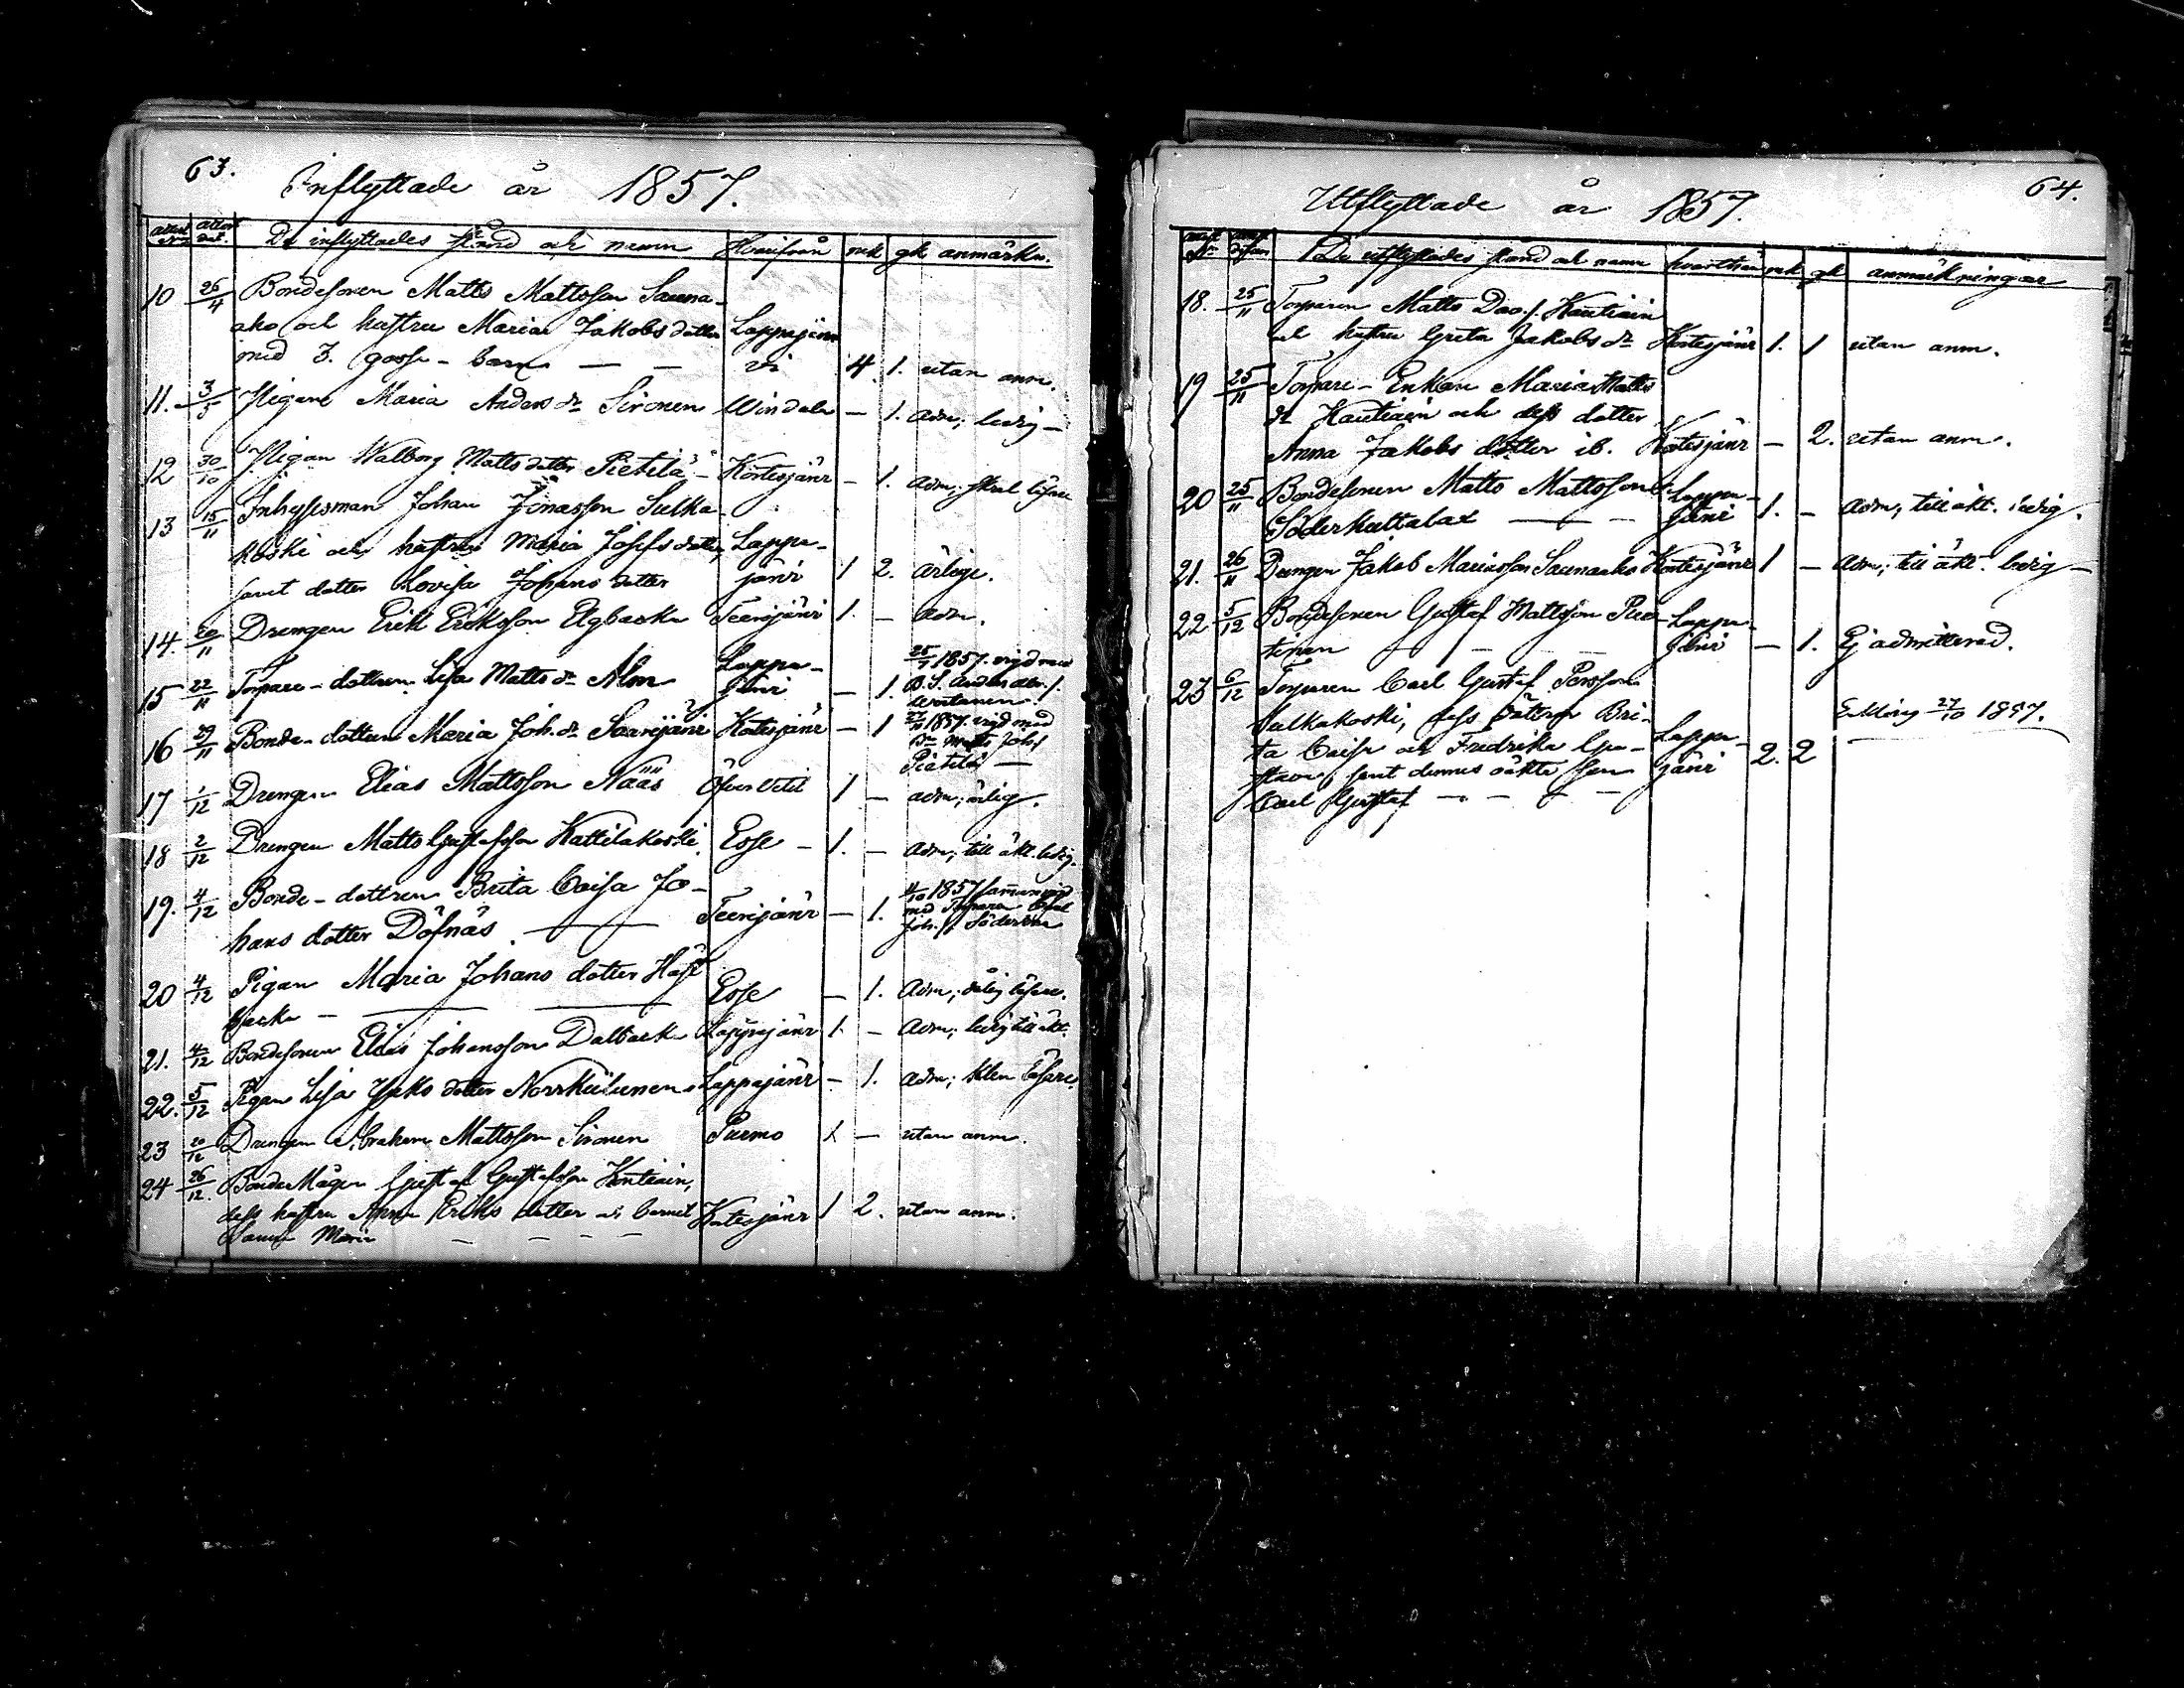 63.
Inflyttade år 1857.
De inflyttades stånd och namn Hvarifrån mk gk anmärkn.
10 26/4 Bondesonen Matts Mattsson Sauna-
aho och hustru Maria Jakobs dotter Lappajär-
med 3. gosse-barn — — vi 4. 1. utan anm.
11. 3/5 Pigan Maria Anders dr Sironen Windala — 1. adm; ledig —
12 30/10 Pigan Walborg Matts dotter Pietilä — Kortesjärvi — 1. adm;
13 15/11 Inhysesman Johan Jonasson Sulka-
koski och hustru Maria Josefs dotter, Lappa-
samt dotter Lovisa Johans dotter järvi 1 2. ärlige.
14. 20/11 Drengen Erik Eriksson Elgbacka Teerijärvi 1. — adm.
15 22/11 Torpare-dottren Lisa Matts dr Alm Lappa-
järvi — 1. 25/7 1857. vigd med
B. S. Anders
16 29/11 Bonde-dottren Maria Joh. dr Saarijärvi Kortesjärvi — 1 1857. vigd med
Matts Joh.
Pietilä —
17 1/12 Drengen Elias Mattsson Nääs Öfver Vetil 1 — adm; ärlig.
18 2/12 Drengen Matts Gustafsson Kattilakoski Esse — 1. — adm; till äkt. ledig.
19. 4/12 Bonde-dottren Brita Caisa Jo-
hans dotter Döfnäs — Teerijärvi — 1. 4/10 1857 sammanvigd
med Torparen
Joh. s.
20 4/12 Pigan Maria Johans dotter Häst-
backa — — — Esse — 1. Adm; dålig läsare.
21. 4/12 Bondesonen Elias Johansson Dalback Lappajärvi 1. — Adm; ledig till äkt.
22. 5/12 Pigan Lisa dotter Norrkulunen Lappajärvi — 1. adm; klen läsare.
23 20/12 Drengen Abraham Mattsson Sironen Purmo 1 — utan anm.
24 26/12. BondeMågen Gustaf Gustafsson Kontiain,
dess hustru Anna Eriks dotter barnet Kortesjärvi 1 2. utan anm.
Maria — — — —
64.
Utflyttade år 1857.
De utflyttades stånd och namn hvarthän mk gk anmärkningar
18. 25/11 Torparen Matts Dav. s. Kautiain
och hustru Greta Jakobs dr Kortesjärvi 1. 1 utan anm.
19 25/11 Torpare-Enkan Maria Matts
dr Kautiain och dess dotter
Anna Jakobs dotter ib. Kortesjärvi — 2. utan anm.
20 25/11 Bondesonen Matts Mattsson Lappa-
Söderkattalax — — järvi 1. — adm; till äkt. ledig.
21. 26/11 Drengen Jakob Mariasson Saunaaho Kortesjärvi 1 — adm; till äkt. ledig —
22 5/12 Bondesonen Gustaf Mattsson Lappa-
— — — järvi — 1. Ej admitterad.
23 6/12 Torparen Carl Gustaf Persson
Sulkakoski, dess döttrar Bri-
ta Caisa och Fredrika Gu-
stava, samt dennes oäkta son
Carl Gustaf — — — — Lappa-
järvi 2. 2 27/10 1857.